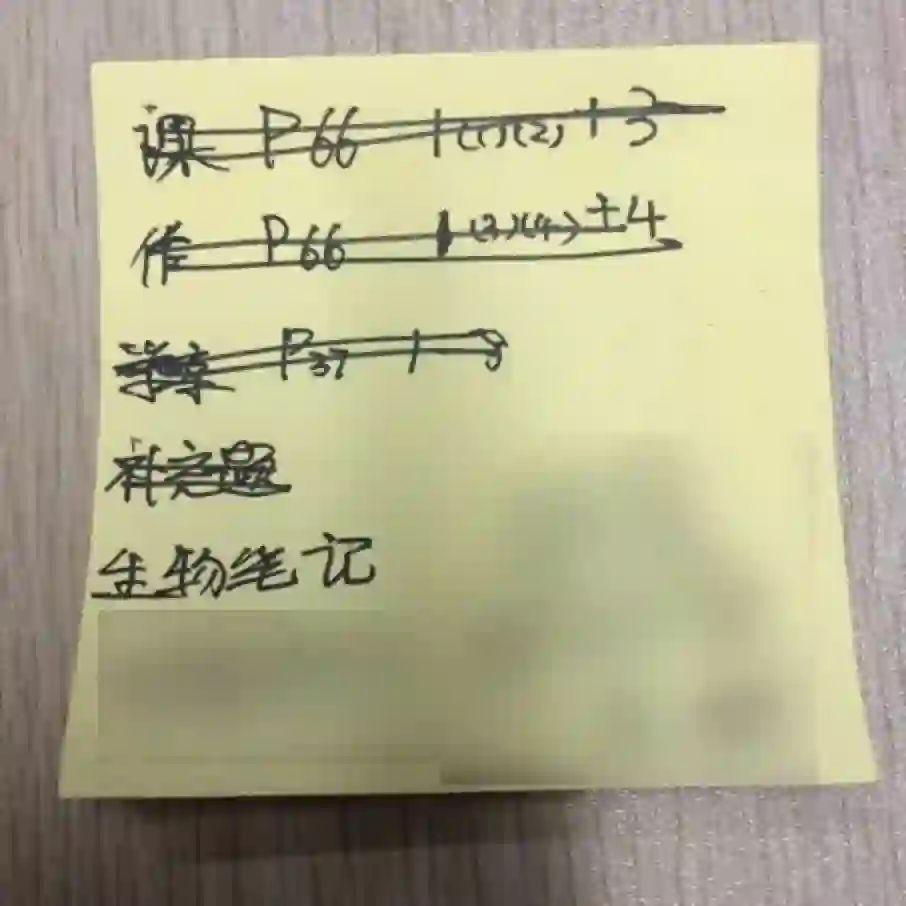 课 P66 1(1)(2) + 3
作 P66 1(3)(4) ± 4
学案 P37 1 3
补充题
生物笔记